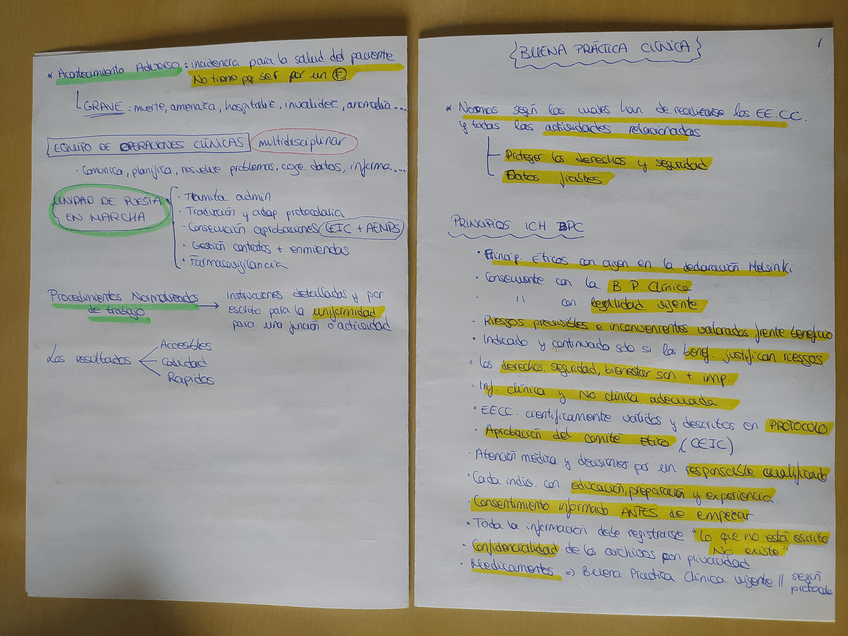 * Acontecimiento Adverso: incidencia para la salud del paciente
No tiene pq ser por un (F)
GRAVE: muerte, amenaza, hospitaliz, invalidez, anomalia...
EQUIPO DE OPERACIONES CLÍNICAS multidisciplinar
· Comunica, planifica, resuelve problemas, coge datos, informa...
UNIDAD DE PUESTA EN MARCHA
· Tramita admin
· Traducción y adap protocolaria
· Consecución aprobaciones (CEIC + AEMPS)
· Gestión contratos + enmiendas
· Farmacovigilancia
Procedimientos Normalizados de trabajo → instrucciones detalladas y por
escrito para la uniformidad
para una función o actividad
Los resultados
Accesibles
Calidad
Rapidos
BUENA PRÁCTICA CLÍNICA
1
* Normas según las cuales han de realizarse los EE.CC.
y todas las actividades relacionadas
Proteger los derechos y seguridad
Datos fiables
PRINCIPIOS ICH BPC
· Princip. Eticos con origen en la declaración Helsinki
· Consecuente con la B P Clínica
· " con legalidad vigente
· Riesgos previsibles e inconvenientes valorados frente beneficio
· Indicado y continuado solo si los benef. justifican riesgos
· Los derechos, seguridad, bienestar son + imp.
· Inf. clínica y No clínica adecuada
· EECC. cientificamente validos y descritos en PROTOCOLO
· Aprobación del comité Etico (CEIC)
· Atención médica y decisiones por un responsable cualificado
· Cada indiv. con educación, preparación y experiencia.
· Consentimiento informado ANTES de empezar
· Toda la información debe registrarse "Lo que no está escrito
No existe"
· Confidencialidad de los archivos por privacidad
· Medicamentos => Buena Practica Clinica vigente || según
protocolo